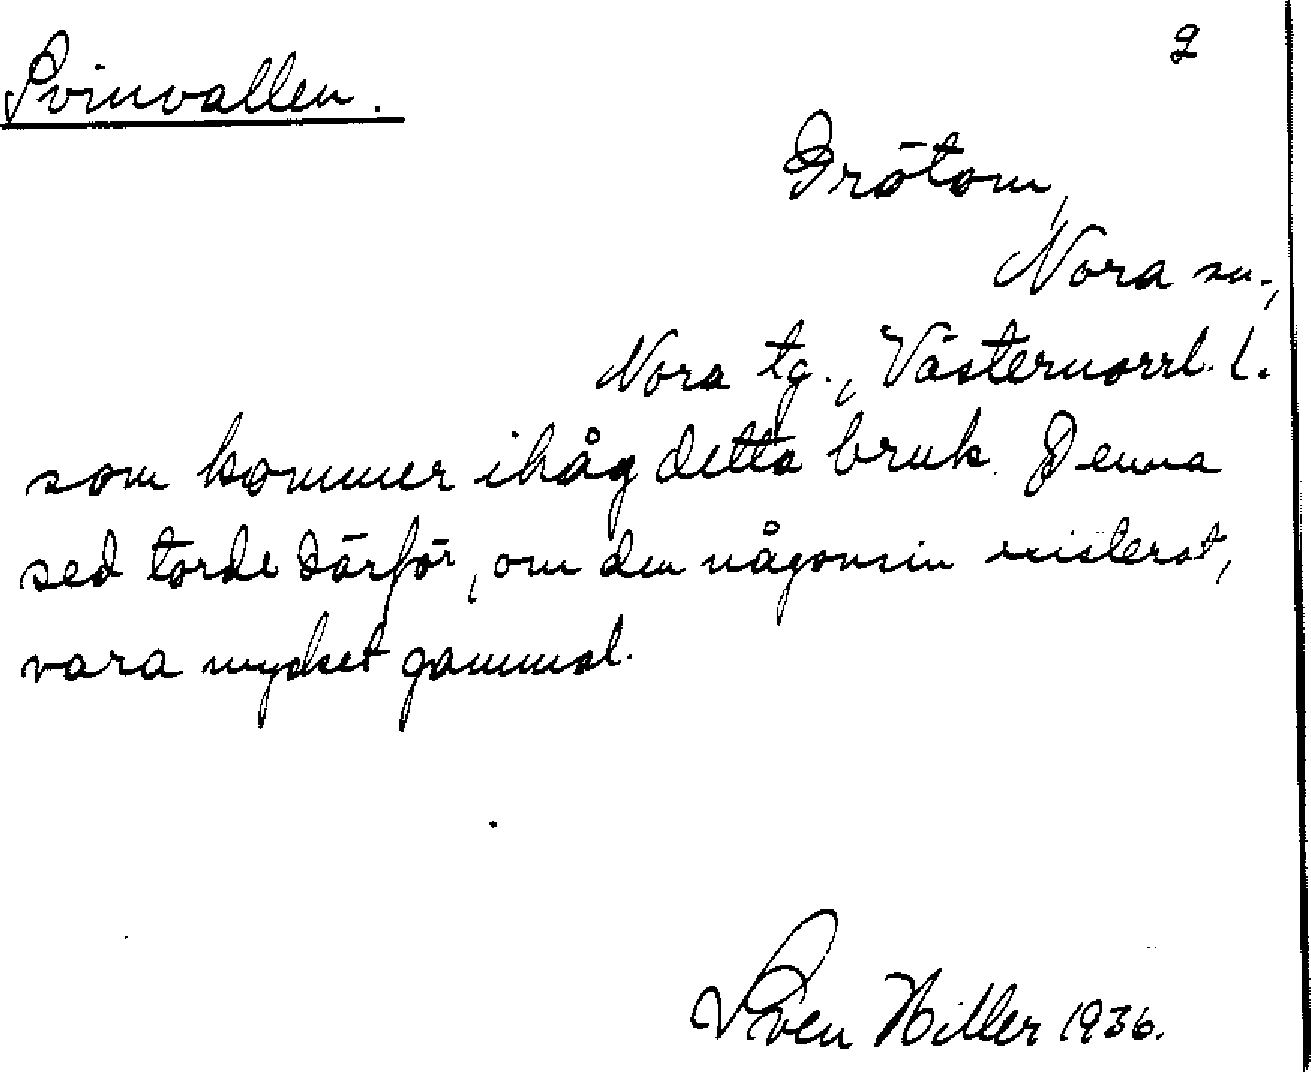 2
Svinvallen.
Grötom,
Nora sn.,
Nora tg., Västernorrl. l.
som kommer ihåg detta bruk. Denna
sed torde därför, om den någonsin existerat,
vara mycket gammal.
Sven Hiller 1936.